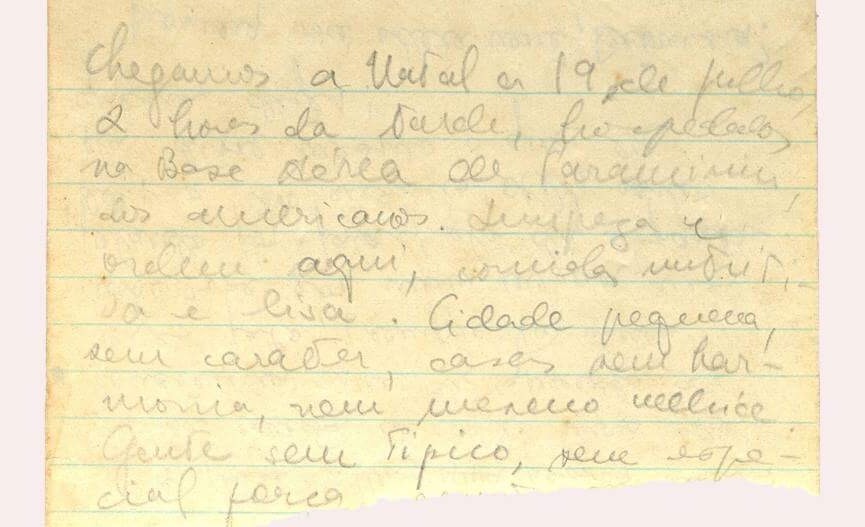 Chegamos a Natal a 19 de julho,
2 horas da tarde, hospedados
na Base Aérea de Paramirim,
dos americanos. Limpeza e
ordem aqui, comida nutriti-
va e lisa. Cidade pequena,
sem carater, casas sem har-
monia, nem mesmo velhice.
Gente sem tipico, sem espe-
cial